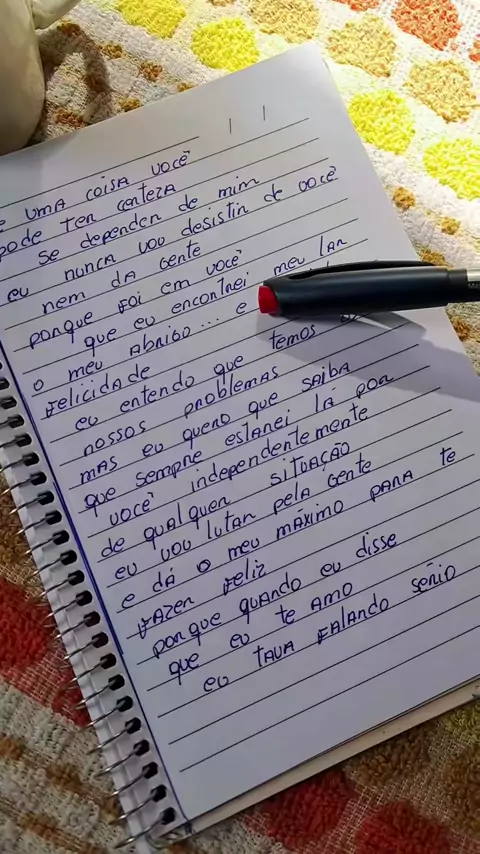 e uma coisa você
pode ter certeza
se depender de mim
eu nunca vou desistir de você
nem da gente
porque foi em você
que eu encontrei meu lar
o meu abrigo... e
felicidade
eu entendo que temos
nossos problemas
mas eu quero que saiba
que sempre estarei lá por
você independentemente
de qualquer situação
eu vou lutar pela gente
e dá o meu máximo para te
fazer feliz
porque quando eu disse
que eu te amo
eu tava falando sério